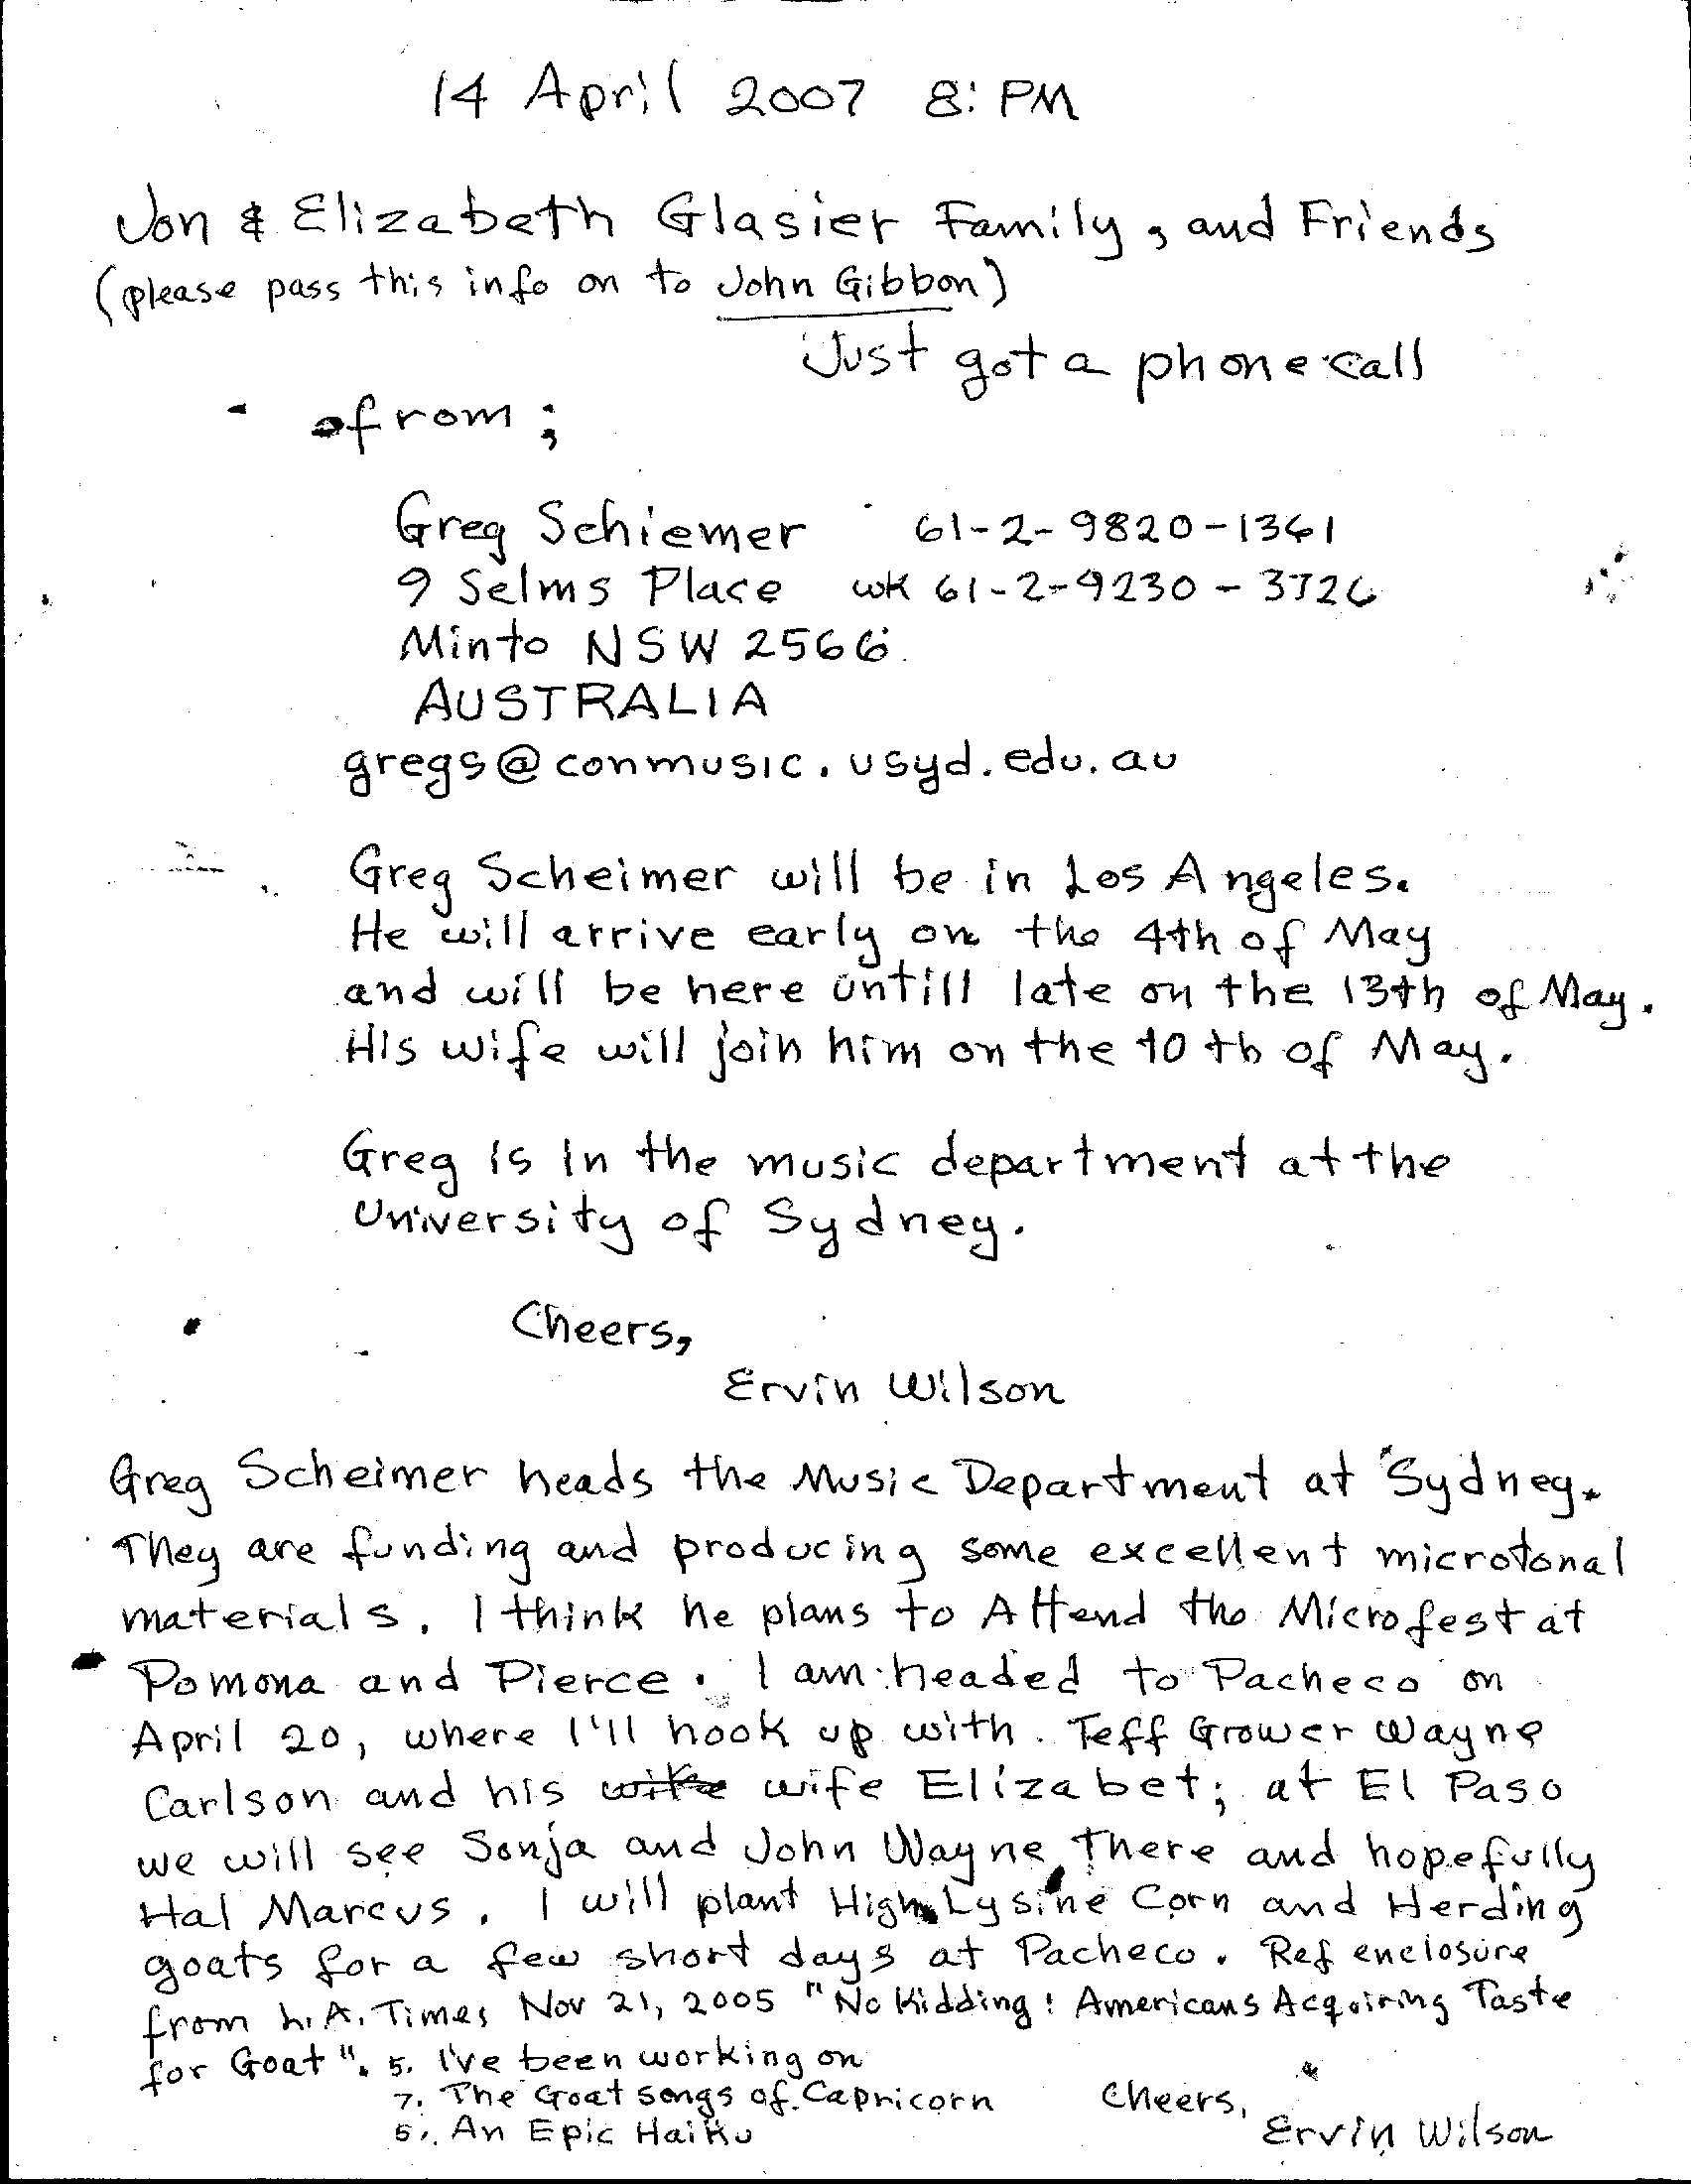 14 April 2007 8: PM
Jon & Elizabeth Glasier Family, and Friends
(please pass this info on to John Gibbon)
Just got a phone call
from;
Greg Schiemer 61-2-9820-1361
9 Selms Place wk 61-2-9230-3726
Minto NSW 2566
AUSTRALIA
gregs@conmusic.usyd.edu.au
Greg Scheimer will be in Los Angeles.
He will arrive early on the 4th of May
and will be here untill late on the 13th of May.
His wife will join him on the 10th of May.
Greg is in the music department at the
University of Sydney.
Cheers,
Ervin Wilson
Greg Scheimer heads the Music Department at Sydney.
They are funding and producing some excellent microtonal
materials. I think he plans to Attend the Microfest at
Pomona and Pierce. I am headed to Pacheco on
April 20, where I'll hook up with Teff Grower Wayne
Carlson and his wife Elizabet; at El Paso
we will see Sonja and John Wayne There and hopefully
Hal Marcus. I will plant High Lysine Corn and Herding
goats for a few short days at Pacheco. Ref enclosure
from L.A. Times Nov 21, 2005 "No Kidding! Americans Acquiring Taste
for Goat". 5. I've been working on
7. The Goat songs of Capricorn Cheers,
5. An Epic Haiku Ervin Wilson